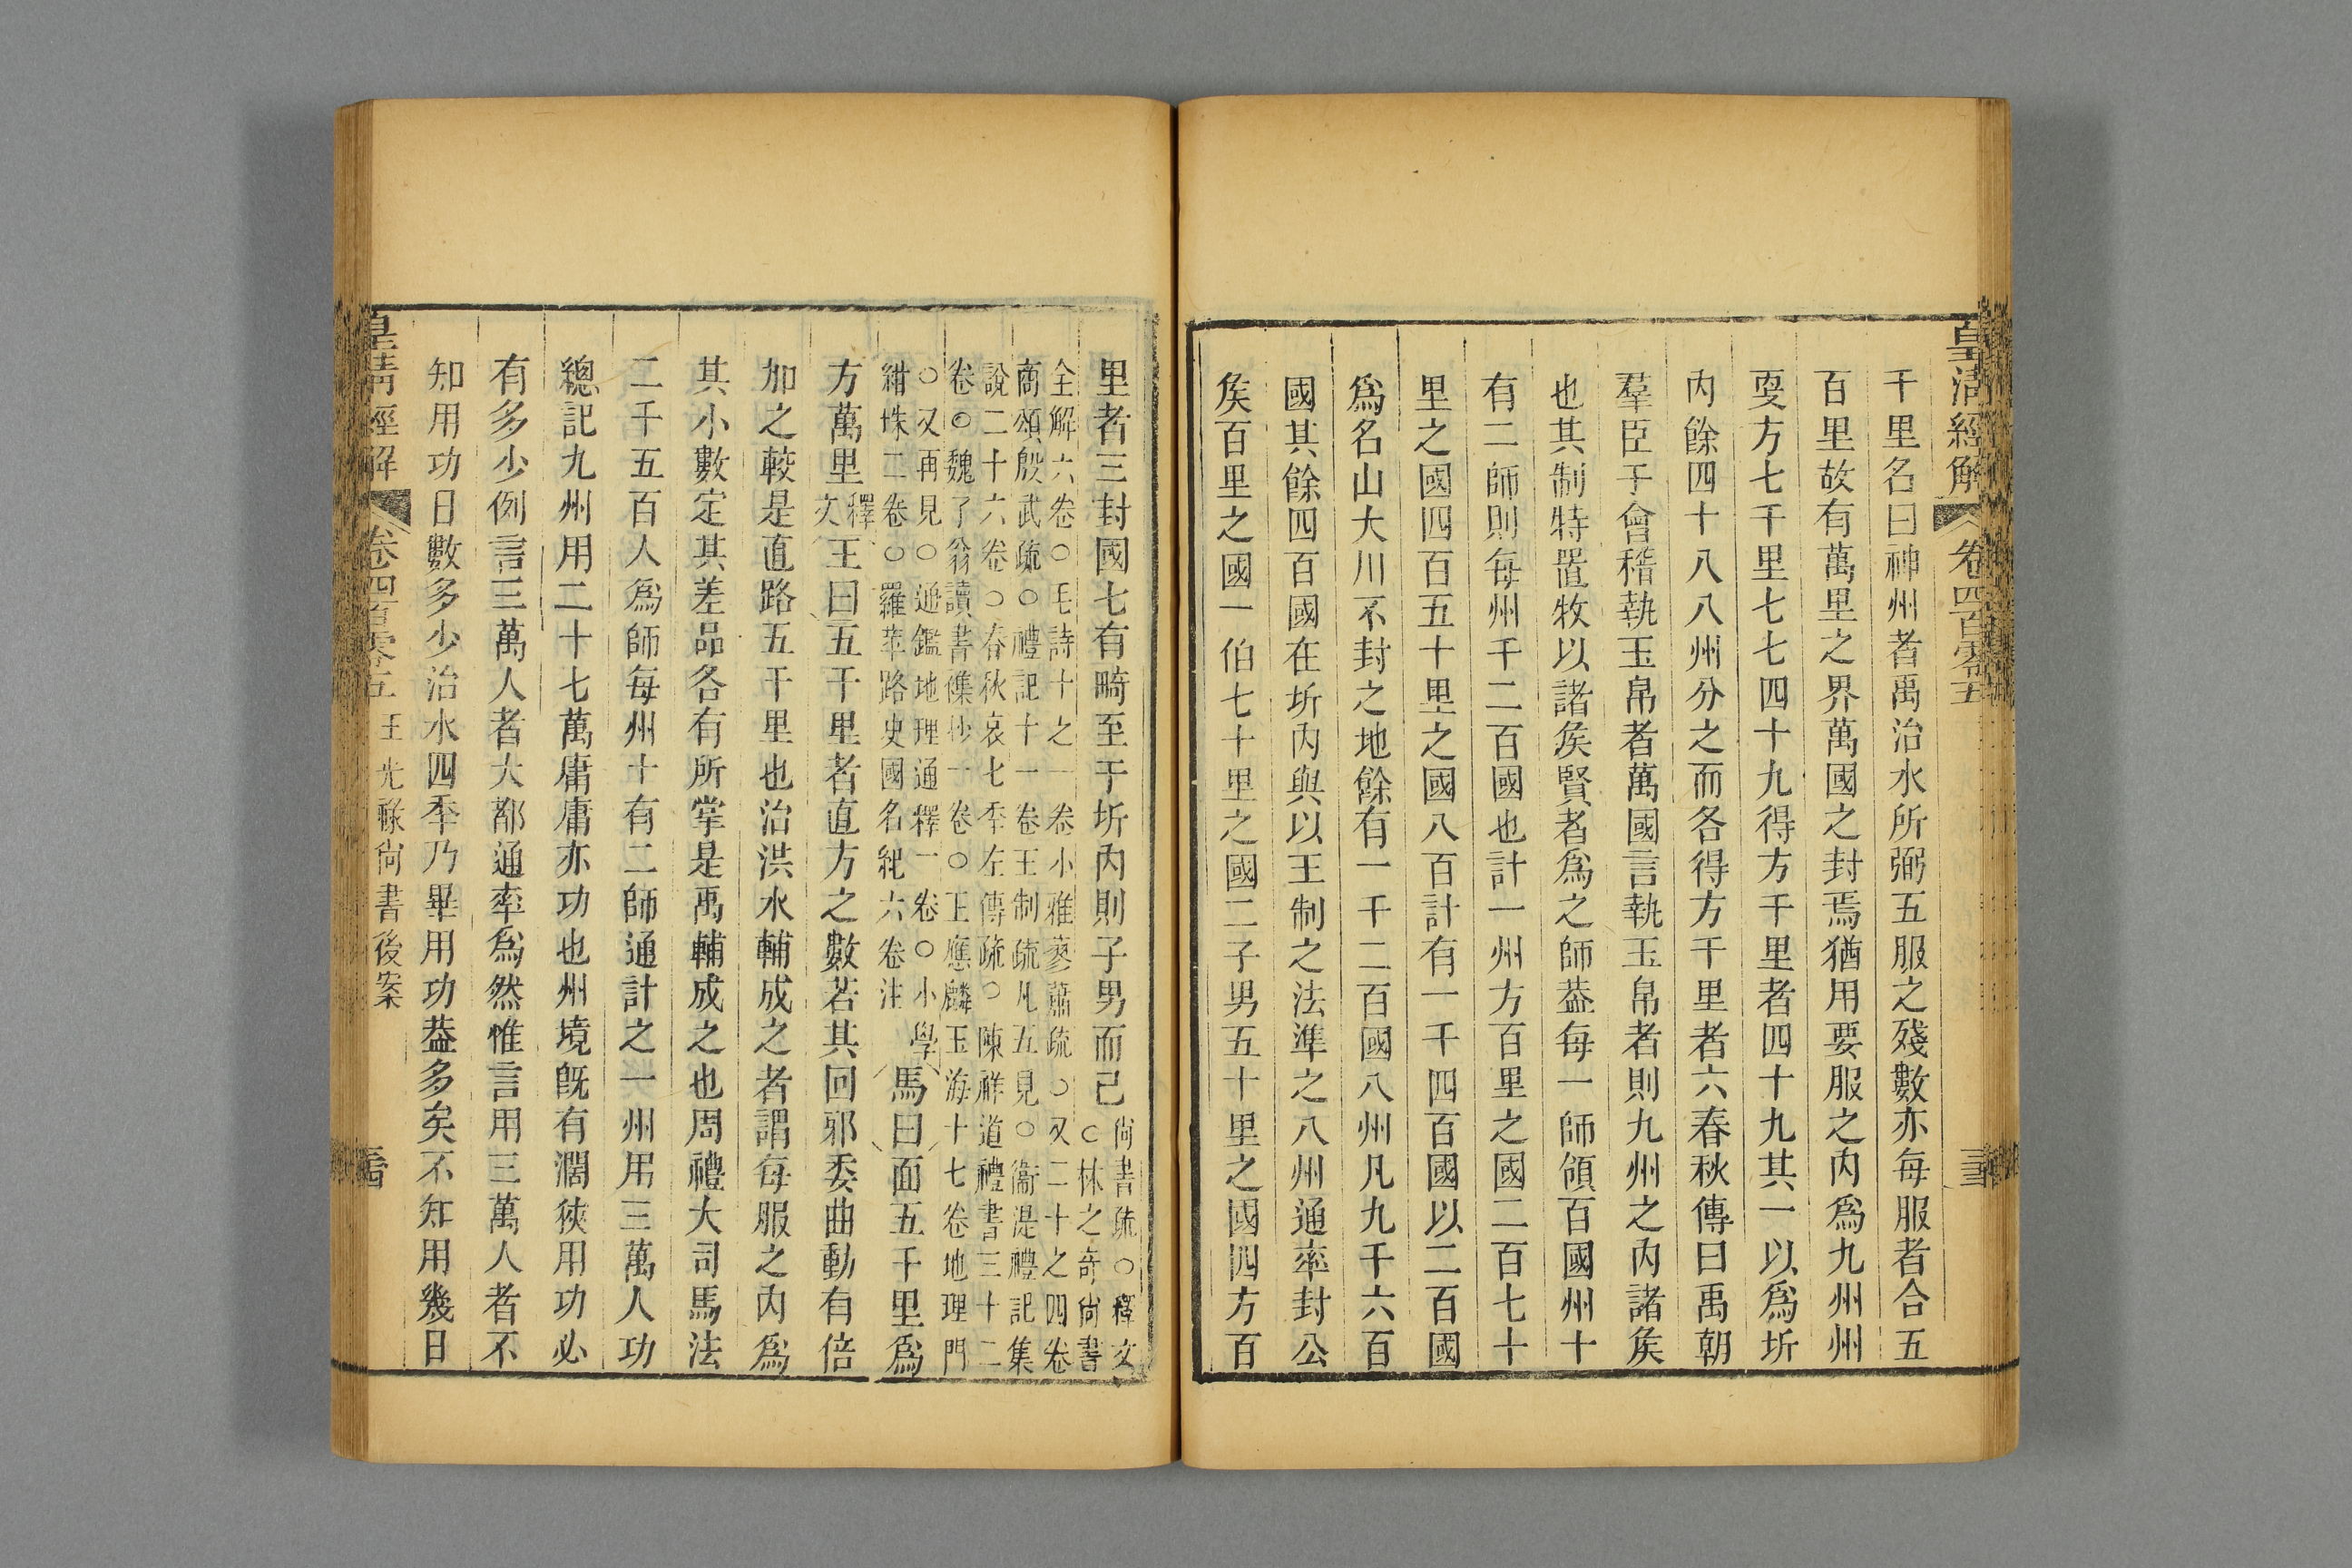 皇清經解
卷四百零五
千里名曰神州者禹治水所弼五服之殘數亦每服者合五
百里故有萬里之界萬國之封焉猶用要服之內爲九州州
耎方七千里七七四十九得方千里者四十九其一以爲圻
內餘四十八八州分之而各得方千里者六春秋傳曰禹朝
羣臣于會稽執玉帛者萬國言執玉帛者則九州之內諸矦
也其制特置牧以諸矦賢者爲之師葢每一師領百國州十
有二師則每州千二百國也計一州方百里之國二百七十
里之國四百五十里之國八百計有一千四百國以二百國
爲名山大川不封之地餘有一千二百國八州凡九千六百
國其餘四百國在圻內與以王制之法準之八州通率封公
矦百里之國一伯七十里之國二子男五十里之國四方百
里者三封國七有畸至于圻內則子男而已
尙書疏○釋文
○林之奇尙書
全解六卷○毛詩十之一卷小雅蓼蕭疏○又二十之四卷
商頌殷武疏○禮記十一卷王制疏凡五見○衞湜禮記集
說二十六卷○春秋哀七年左傳疏○陳祥道禮書三十二
卷○魏了翁讀書襍抄一卷○王應麟玉海十七卷地理門
○又再見○通鑑地理通釋一卷○小學
紺珠二卷○羅苹路史國名紀六卷注
馬曰面五千里爲
方萬里
釋
文
王曰五千里者直方之數若其回邪委曲動有倍
加之較是直路五千里也治洪水輔成之者謂每服之內爲
其小數定其差品各有所掌是禹輔成之也周禮大司馬法
二千五百人爲師每州十有二師通計之一州用三萬人功
總記九州用二十七萬庸庸亦功也州境旣有濶狹用功必
有多少例言三萬人者大都通率爲然惟言用三萬人者不
知用功日數多少治水四季乃畢用功葢多矣不知用幾日
皇淸經解
卷四百零五
王光祿尙書後案